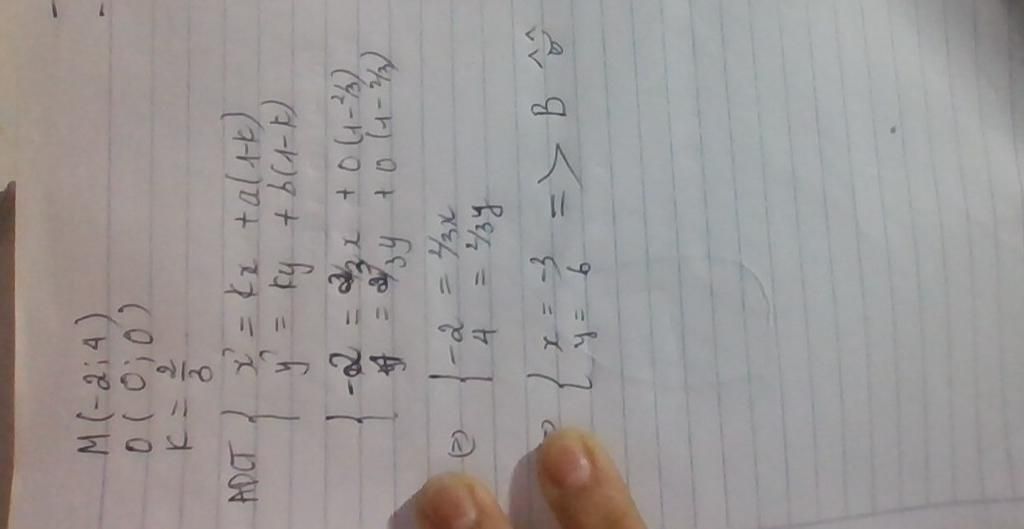 M(-2;4)
O(0;0)
K = 2/3
ADCT { x' = kx + a(1-k)
y' = ky + b(1-k)
{ -2 = 2/3x + 0(1-2/3)
4 = 2/3y + 0(1-2/3)
(=) { -2 = 2/3x
4 = 2/3y
{ x = -3 => B ^^
y = 6